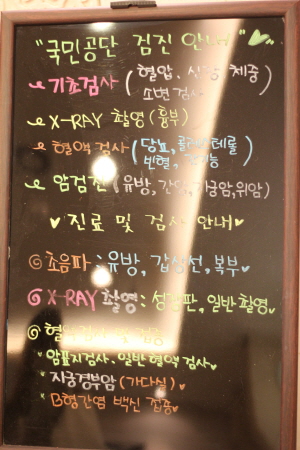 "국민공단 검진 안내"
기초검사 (혈압, 시력, 체중
소변검사)
X-RAY 촬영 (흉부)
혈액검사 (당뇨, 콜레스테롤
빈혈, 간기능)
암검진 (유방, 간암, 자궁암, 위암)
진료 및 검사 안내
초음파 : 유방, 갑상선, 복부
X RAY 촬영 : 성장판, 일반촬영
혈액검사 및 접종
암표지검사, 일반혈액검사
자궁경부암 (가다실)
B형간염 백신 접종